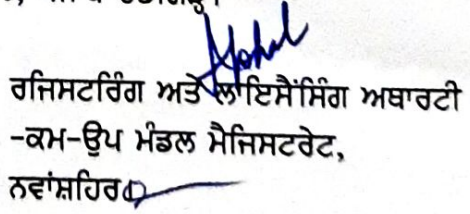 ਰਜਿਸਟਰਿੰਗ ਅਤੇ ਲਾਇਸੈਂਸਿੰਗ ਅਥਾਰਟੀ
-ਕਮ-ਉਪ ਮੰਡਲ ਮੈਜਿਸਟਰੇਟ,
ਨਵਾਂਸ਼ਹਿਰ